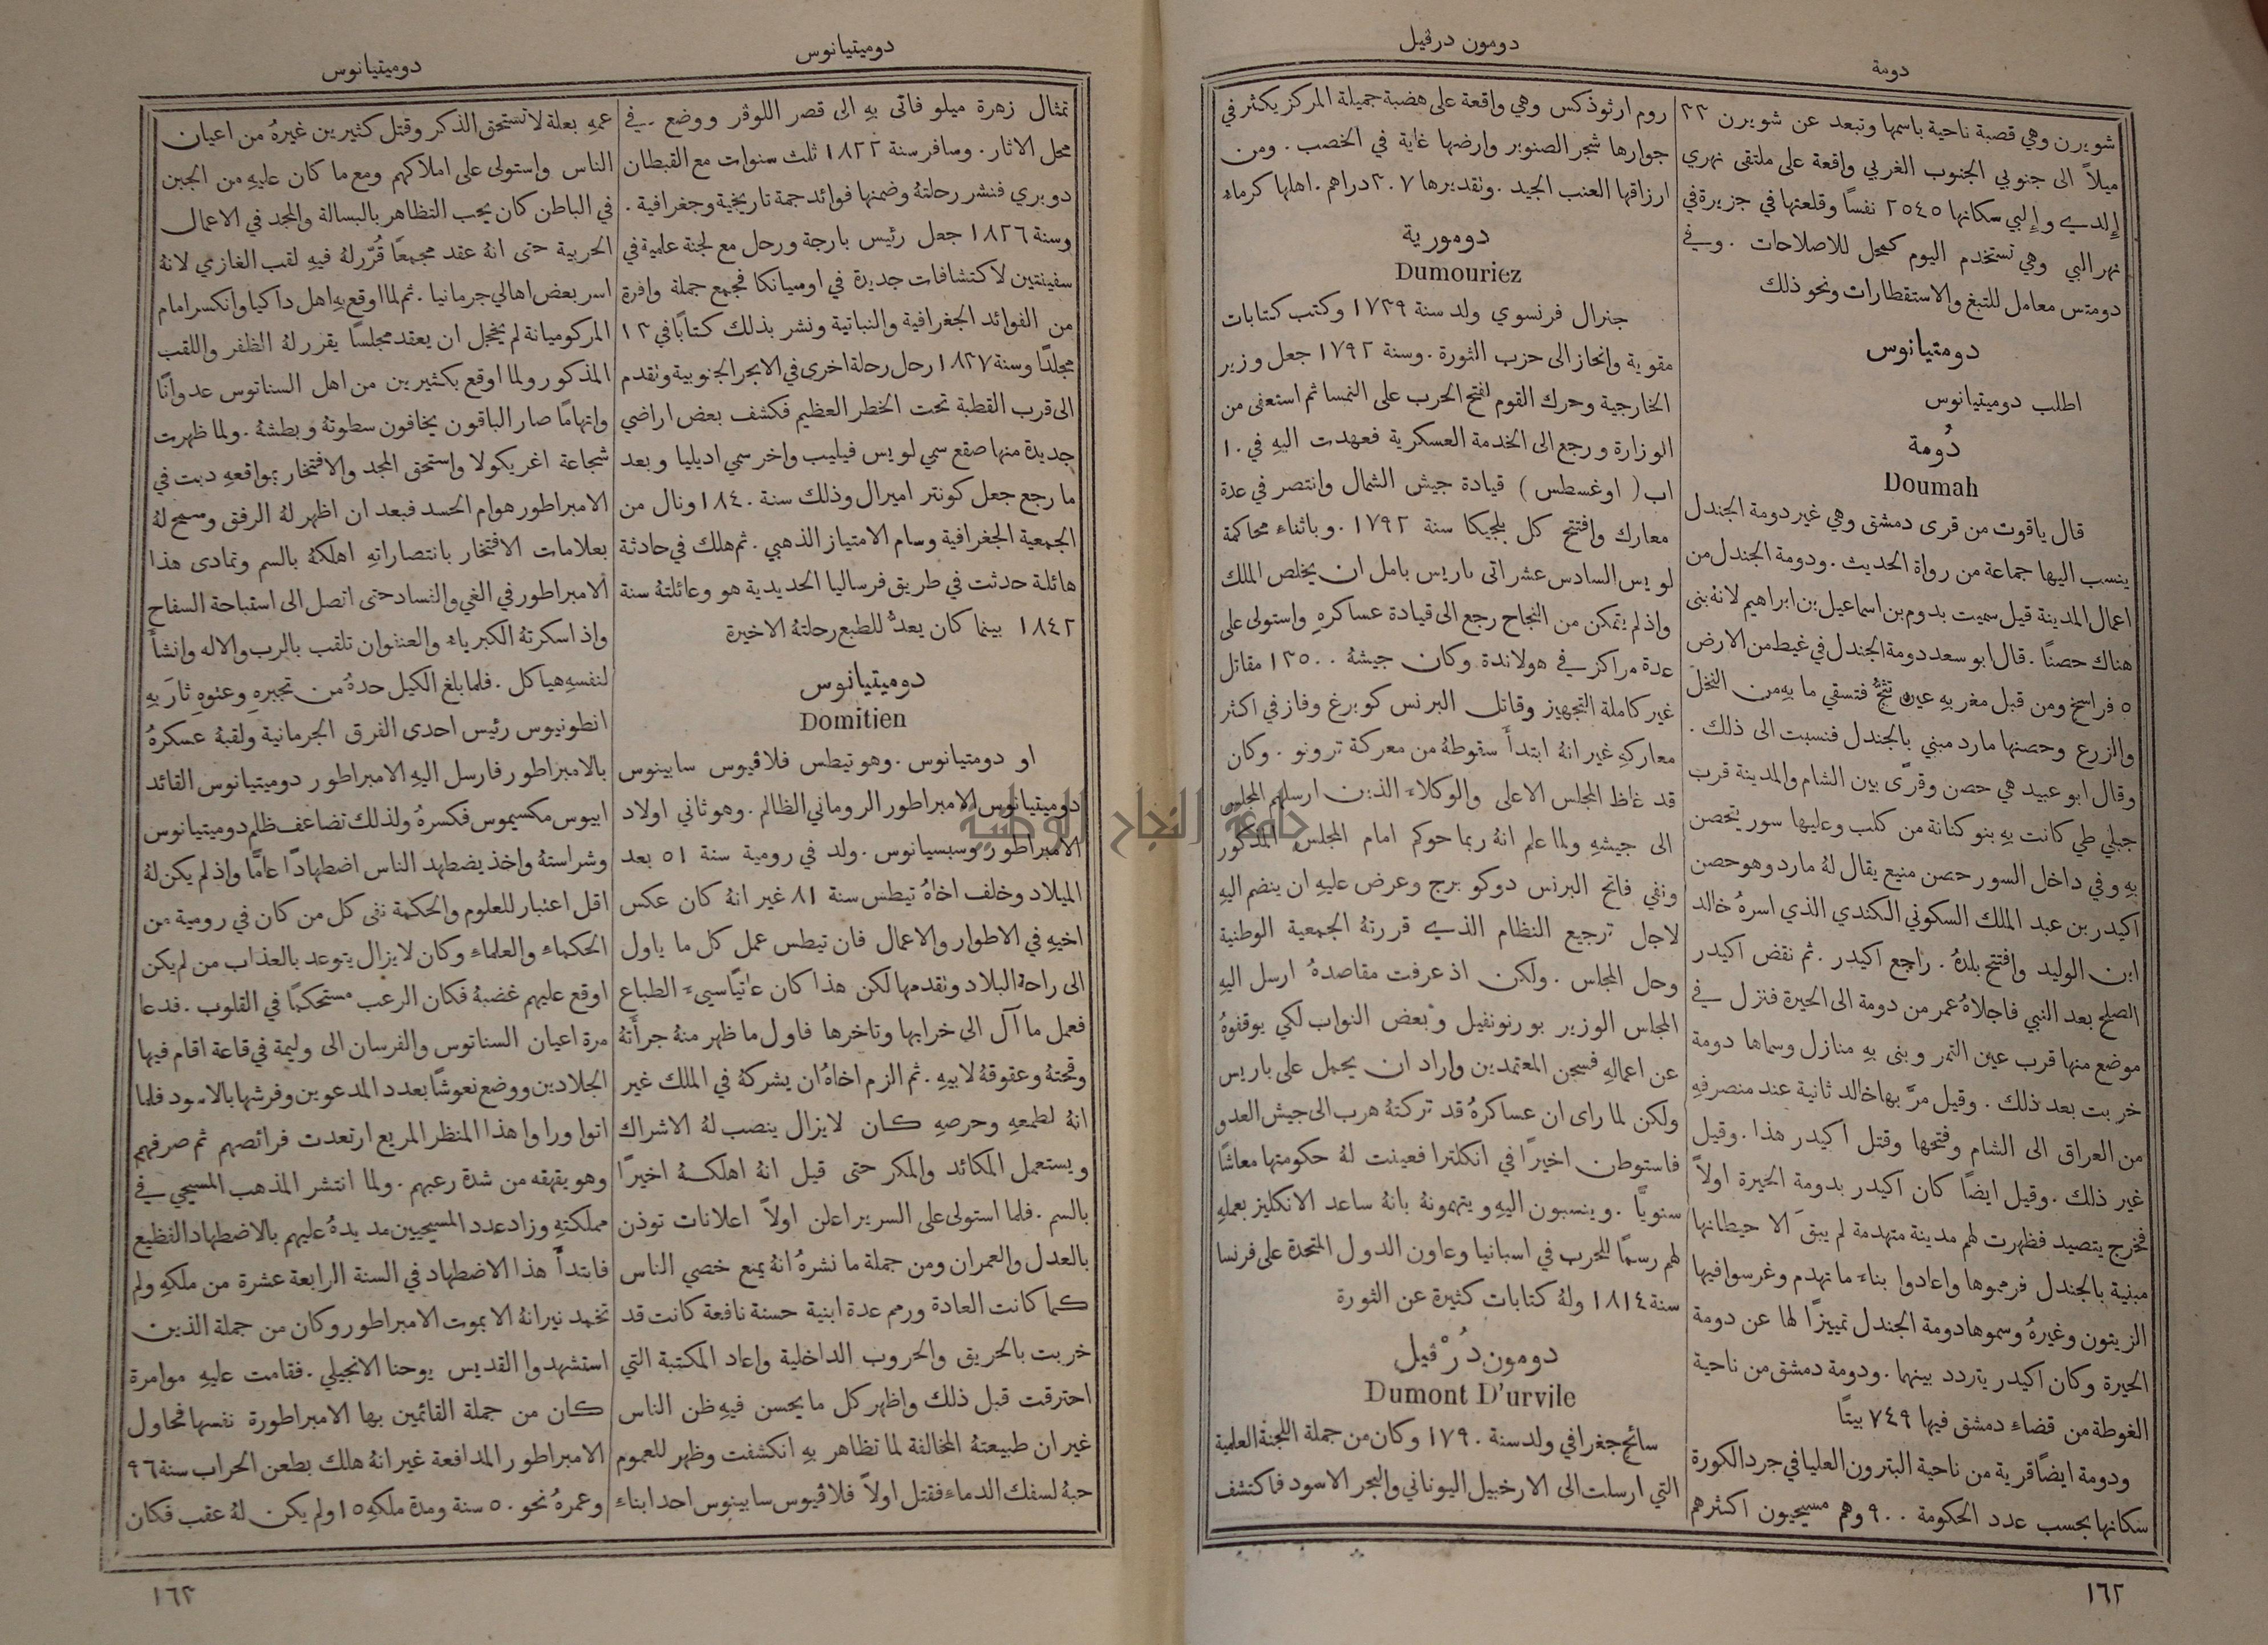 دومة
دومون درڤيل
شوبرن وهي قصبة ناحية باسمها وتبعد عن شوبرن ٢٣
ميلاً الى جنوبي الجنوب الغربي واقعة على ملتقى نهري
إِلدي وإِلبي سكانها ٢٥٤٥ نفسًا وقلعتها في جزيرة في
نهر البي وهي تستخدم اليوم كمحل للاصلاحات . وفي
دومتس معامل للتبغ والاستقطارات ونحو ذلك
دومتيانوس
اطلب دوميتيانوس
دُومة
Doumah
قال ياقوت من قرى دمشق وهي غير دومة الجندل
ينسب اليها جماعة من رواة الحديث . ودومة الجندل من
اعمال المدينة قيل سميت بدوم بن اسماعيل بن ابراهيم لانهُ بنى
هناك حصنًا . قال ابو سعد دومة الجندل في غيط من الارض
٥ فراسخ ومن قبل مغربهِ عين تثجُّ فتسقي ما بهِ من النخل
والزرع وحصنها مارد مبني بالجندل فنسبت الى ذلك .
وقال ابو عبيد هي حصن وقرًى بين الشام والمدينة قرب
جبلي طي كانت بهِ بنو كنانة من كلب وعليها سور يتحصن
بهِ وفي داخل السور حصن منيع يقال لهُ مارد وهو حصن
اكيدر بن عبد الملك السكوني الكندي الذي اسرهُ خالد
ابن الوليد وافتتح بلدهُ . راجع اكيدر . ثم نقض اكيدر
الصلح بعد النبي فاجلاهُ عمر من دومة الى الحيرة فنزل في
موضع منها قرب عين التمر وبنى بهِ منازل وسماها دومة
خربت بعد ذلك . وقيل مرَّ بها خالد ثانية عند منصرفهِ
من العراق الى الشام وفتحها وقتل اكيدر هذا . وقيل
غير ذلك . وقيل ايضًا كان اكيدر بدومة الحيرة اولاً
فخرج يتصيد فظهرت لهم مدينة متهدمة لم يبقَ الا حيطانها
مبنية بالجندل فرمموها واعادوا بناء ما تهدم وغرسوا فيها
الزيتون وغيرهُ وسموها دومة الجندل تمييزًا لها عن دومة
الحيرة وكان اكيدر يتردد بينهما . ودومة دمشق من ناحية
الغوطة من قضاء دمشق فيها ٧٤٩ بيتًا
ودومة ايضًا قرية من ناحية البترون العليا في جرد الكورة
سكانها بحسب عدد الحكومة ٩٠٠ وهم مسيحيون اكثرهم
روم ارثوذكس وهي واقعة على هضبة جميلة المركز يكثر في
جوارها شجر الصنوبر وارضها غاية في الخصب . ومن
ارزاقها العنب الجيد . وتقديرها ٣٠٧ دراهم . اهلها كرماء
دومورية
Dumouriez
جنرال فرنسوي ولد سنة ١٧٣٩ وكتب كتابات
مقوية وانحاز الى حزب الثورة . وسنة ١٧٩٢ جعل وزير
الخارجية وحرك القوم لفتح الحرب على النمسا ثم استعفى من
الوزارة ورجع الى الخدمة العسكرية فعهدت اليهِ في ١٠
اب ( اوغسطس ) قيادة جيش الشمال وانتصر في عدة
معارك وافتتح كل بلجيكا سنة ١٧٩٢ . وباثناء محاكمة
لويس السادس عشر اتى باريس بامل ان يخلص الملك
واذ لم يتمكن من النجاح رجع الى قيادة عساكرهِ واستولى على
عدة مراكز في هولاندة وكان جيشهُ ١٣٥٠٠ مقاتل
غير كاملة التجهيز وقاتل البرنس كوبرغ وفاز في اكثر
معاركهِ غير انهُ ابتدأَ سقوطهُ من معركة ترونو . وكان
قد غاظ المجلس الاعلى والوكلاء الذين ارسلهم المجلس
الى جيشهِ ولما علم انهُ ربما حوكم امام المجلس المذكور
ونفي فاتح البرنس دوكو برج وعرض عليهِ ان ينضم اليهِ
لاجل ترجيع النظام الذي قررتهُ الجمعية الوطنية
وحل المجلس . ولكن اذ عرفت مقاصدهُ ارسل اليهِ
المجلس الوزير بورنونفيل وبعض النواب لكي يوقفوهُ
عن اعمالهِ فسجن المعتمدين واراد ان يحمل على باريس
ولكن لما راى ان عساكرهُ قد تركتهُ هرب الى جيش العدو
فاستوطن اخيرًا في انكلترا فعينت لهُ حكومتها معاشًا
سنويًّا . وينسبون اليهِ ويتهمونهُ بانهُ ساعد الانكليز بعملهِ
لهم رسمًا للحرب في اسبانيا وعاون الدول المتحدة على فرنسا
سنة ١٨١٤ ولهُ كتابات كثيرة عن الثورة
دومون دُرْڤيل
Dumont D'urvile
سائح جغرافي ولد سنة ١٧٩٠ وكان من جملة اللجنة العلمية
التي ارسلت الى الارخبيل اليوناني والبحر الاسود فاكتشف
١٦٢
دوميتيانوس
دوميتيانوس
تمثال زهرة ميلو فاتى بهِ الى قصر اللوڤر ووضع في
محل الاثار . وسافر سنة ١٨٢٢ ثلث سنوات مع القبطان
دوبري فنشر رحلتهُ وضمنها فوائد جمة تاريخية وجغرافية .
وسنة ١٨٢٦ جعل رئيس بارجة ورحل مع لجنة علمية في
سفينتين لاكتشافات جديدة في اوسيانكا فجمع جملة وافرة
من الفوائد الجغرافية والنباتية ونشر بذلك كتابًا في ١٣
مجلدًا وسنة ١٨٣٧ رحل رحلة اخرى في الابحر الجنوبية وتقدم
الى قرب القطبة تحت الخطر العظيم فكشف بعض اراضي
جديدة منها صقع سمي لويس فيليب واخر سمي اديليا وبعد
ما رجع جعل كونتر اميرال وذلك سنة ١٨٤٠ ونال من
الجمعية الجغرافية وسام الامتياز الذهبي . ثم هلك في حادثة
هائلة حدثت في طريق فرساليا الحديدية هو وعائلتهُ سنة
١٨٤٢ بينما كان يعدُّ للطبع رحلتهُ الاخيرة
دوميتيانوس
Domitien
او دومتيانوس . وهو تيطس فلاڤيوس سابينوس
دوميتيانوس الامبراطور الروماني الظالم . وهو ثاني اولاد
الامبراطور وسبسيانوس . ولد في رومية سنة ٥١ بعد
الميلاد وخلف اخاهُ تيطس سنة ٨١ غير انهُ كان عكس
اخيهِ في الاطوار والاعمال فان تيطس عمل كل ما ياول
الى راحة البلاد وتقدمها لكن هذا كان عاتيًا سيىء الطباع
فعمل ما آل الى خرابها وتاخرها فاول ما ظهر منهُ جرأَتهُ
وقحتهُ وعقوقهُ لابيهِ . ثم الزم اخاهُ ان يشركهُ في الملك غير
انهُ لطمعهِ وحرصهِ كان لا يزال ينصب لهُ الاشراك
ويستعمل المكائد والمكر حتى قيل انهُ اهلكهُ اخيرًا
بالسم . فلما استولى على السرير اعلن اولاً اعلانات توذن
بالعدل والعمران ومن جملة ما نشرهُ انهُ يمنع خصي الناس
كما كانت العادة ورمم عدة ابنية حسنة نافعة كانت قد
خربت بالحريق والحروب الداخلية واعاد المكتبة التي
احترقت قبل ذلك واظهر كل ما يحسن فيهِ ظن الناس
غير ان طبيعتهُ المخالفة لما تظاهر بهِ انكشفت وظهر للعموم
حبهُ لسفك الدماء فقتل اولاً فلاڤيوس سابينوس احد ابناء
عمهِ بعلة لا تستحق الذكر وقتل كثيرين غيرهُ من اعيان
الناس واستولى على املاكهم ومع ما كان عليهِ من الجبن
في الباطن كان يحب التظاهر بالبسالة والمجد في الاعمال
الحربية حتى انهُ عقد مجمعًا قُرّر لهُ فيهِ لقب الغازي لانهُ
اسر بعض اهالي جرمانيا . ثم لما اوقع بهِ اهل داكيا وانكسر امام
المركوميانة لم يخجل ان يعقد مجلسًا يقرر لهُ الظفر واللقب
المذكور ولما اوقع بكثيرين من اهل السناتوس عدوانًا
واتهامًا صار الباقون يخافون سطوتهُ وبطشهُ . ولما ظهرت
شجاعة اغريكولا واستحق المجد والافتخار بمواقعهِ دبت في
الامبراطور هوام الحسد فبعد ان اظهر لهُ الرفق وسمح لهُ
بعلامات الافتخار بانتصاراتهِ اهلكهُ بالسم وتمادى هذا
الامبراطور في الغي والفساد حتى اتصل الى استباحة السفاح
واذ اسكرتهُ الكبرياء والعنفوان تلقب بالرب والاله وانشأَ
لنفسهِ هياكل . فلما بلغ الكيل حدهُ من تجبرهِ وعتوهِ ثارَ بهِ
انطونيوس رئيس احدى الفرق الجرمانية ولقبهُ عسكرهُ
بالامبراطور فارسل اليهِ الامبراطور دوميتيانوس القائد
ابيوس مكسيموس فكسرهُ ولذلك تضاعف ظلم دوميتيانوس
وشراستهُ واخذ يضطهد الناس اضطهادًا عامًّا واذ لم يكن لهُ
اقل اعتبار للعلوم والحكمة نفى كل من كان في رومية من
الحكماء والعلماء وكان لا يزال يتوعد بالعذاب من لم يكن
اوقع عليهم غضبهُ فكان الرعب مستحكمًا في القلوب . فدعا
مرة اعيان السناتوس والفرسان الى وليمة في قاعة اقام فيها
الجلادين ووضع نعوشًا بعدد المدعوين وفرشها بالاسود فلما
اتوا وراوا هذا المنظر المريع ارتعدت فرائصهم ثم صرفهم
وهو يقهقه من شدة رعبهم . ولما انتشر المذهب المسيحي في
مملكتهِ وزاد عدد المسيحيين مد يدهُ عليهم بالاضطهاد الفظيع
فابتدأَ هذا الاضطهاد في السنة الرابعة عشرة من ملكهِ ولم
تخمد نيرانهُ الا بموت الامبراطور وكان من جملة الذين
استشهدوا القديس يوحنا الانجيلي . فقامت عليهِ موامرة
كان من جملة القائمين بها الامبراطورة نفسها فحاول
الامبراطور المدافعة غير انهُ هلك بطعن الحراب سنة ٩٦
وعمرهُ نحو ٥٠ سنة ومدة ملكهِ ١٥ ولم يكن لهُ عقب فكان
١٦٣
جامعة النجاح الوطنية